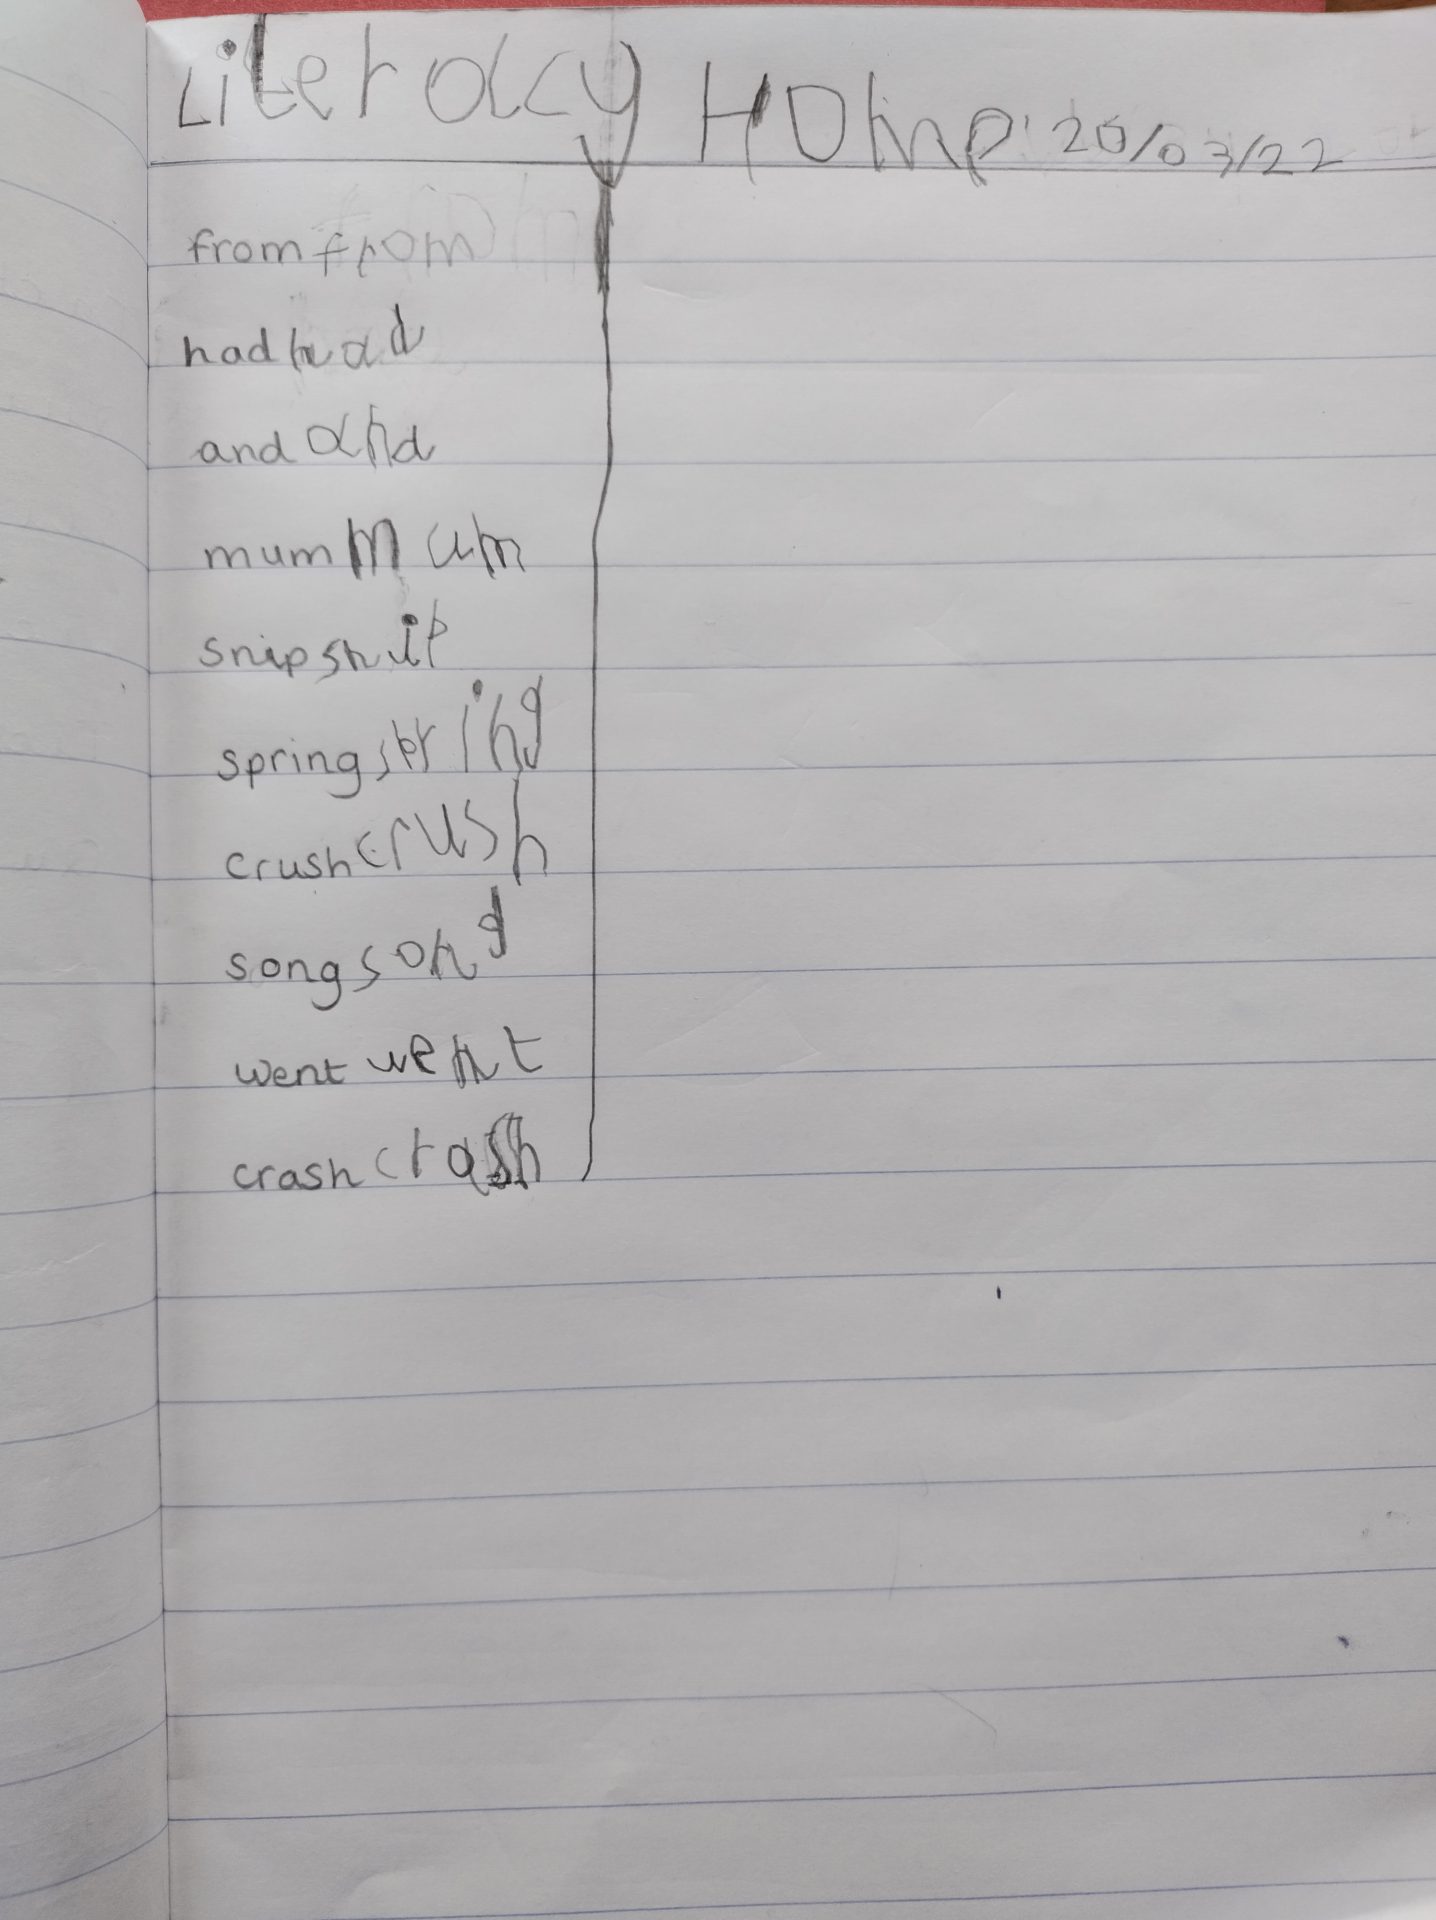 Literacy Home 20/03/22
from from
had had
and and
mum mum
snip snip
spring string
crush crush
song song
went went
crash crash